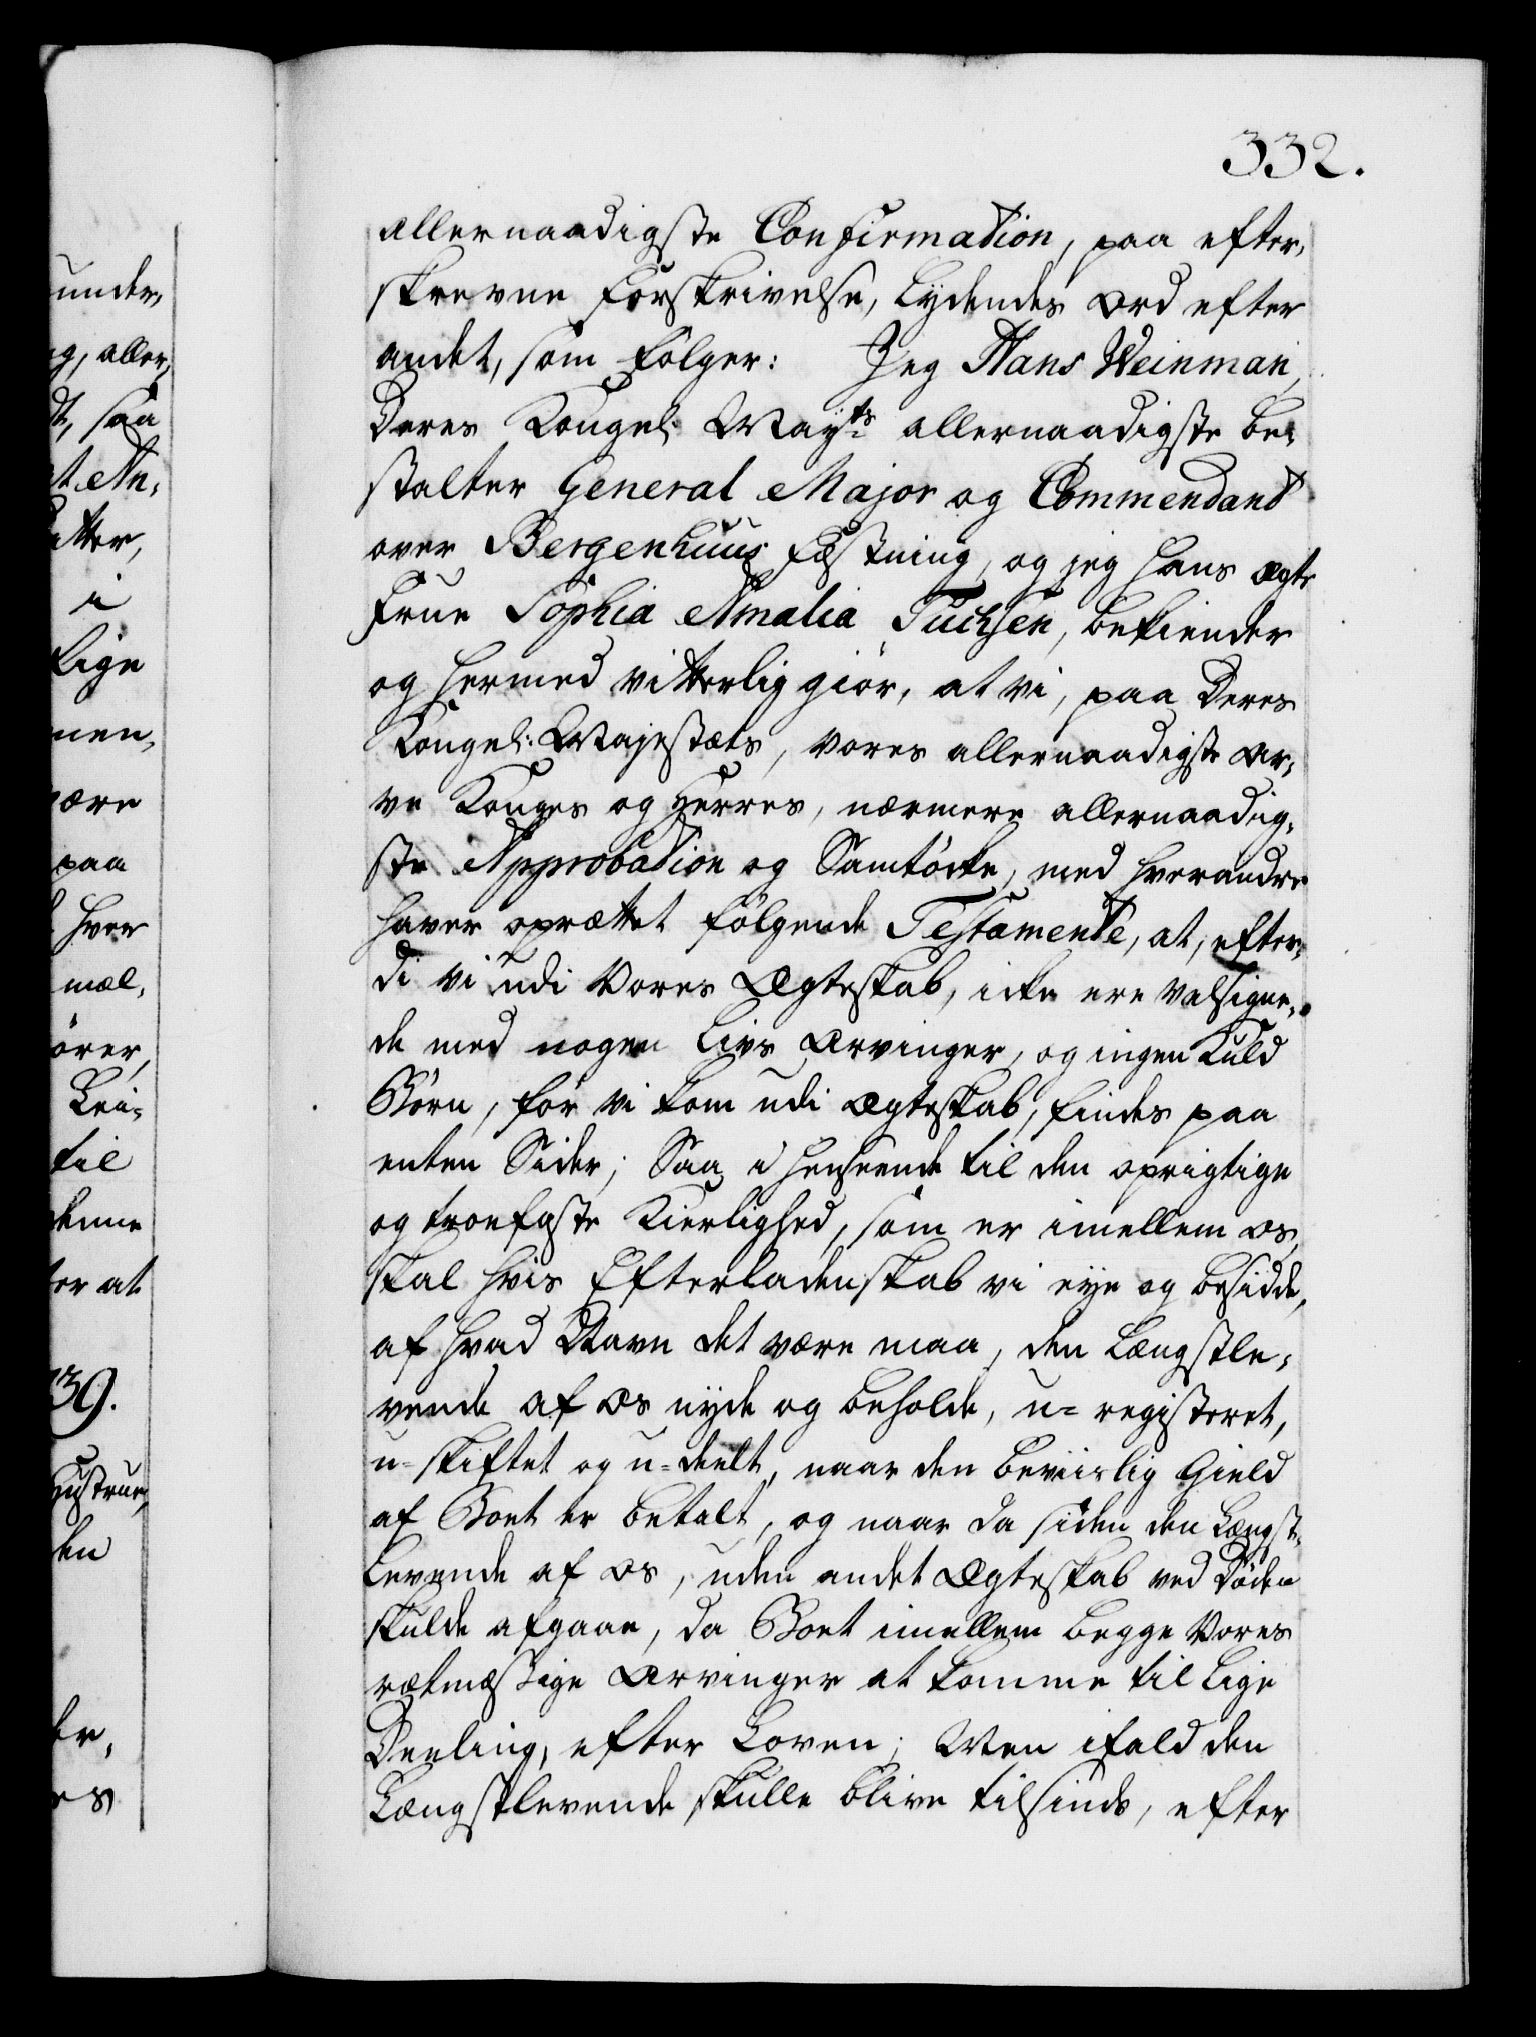 332.
allernaadigste Confirmation, paa efter,
skrevne Forskrivelse, Lydendes Ord efter
andet, som følger: Jeg Hans Weinman,
Deres Kongel: Mayts allernaadigste be,
stalter General Major og Commendant
over Bergenhuus Fæstning, og jeg Hans ægte
Frue Sophia Amalia Tuchsen, bekiender
og hermed vitterlig giør, at vi, paa Deres
Kongel: Majestæts, vores allernaadigste Ar,
ve Konges og Herres, nærmere allernaadig,
ste Approbation og Samtÿcke, med hverandre
haver oprættet følgende Testamente, at, efter,
di vi udi Vores Ægteskab, icke ere velsigne,
de med nogen Livs Arvinger, og ingen Kuld
Børn, før vi kom udi Ægteskab, findes paa
enten Sider; Saa i henseende til den oprigtige
og troefaste Kierlighed, som er imellem os,
skal hvis Efterladenskab vi eÿe og besidde,
af hvad Navn det være maa, den Længstle,
vende af os nÿde og beholde, u=registeret,
u=skiftet og u=deelt, naar den beviislig Gield
af Boet er betalt, og naar da siden den Længst,
levende af os, uden andet Ægteskab ved Døden
skulde afgaae, da Boet imellem begge Vores
rætmæssige Arvinger at komme til lige
Deeling, efter Loven; Men ifald den
Længstlevende skulle blive tilsinds, efter
under,
g, aller,
t, saa
t An,
atter,
i
lige
men,
være
paa
hver
mæl,
ører,
Lei,
til
denne
for at
39.
Hustrue,
den
br,
es